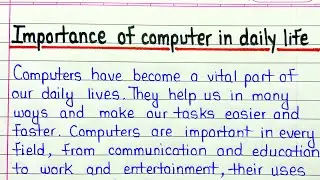 Importance of computer in daily life
Computers have become a vital part of
our daily lives. They help us in many
ways and make our tasks easier and
faster. Computers are important in every
field, from communication and education
to work and entertainment, their uses